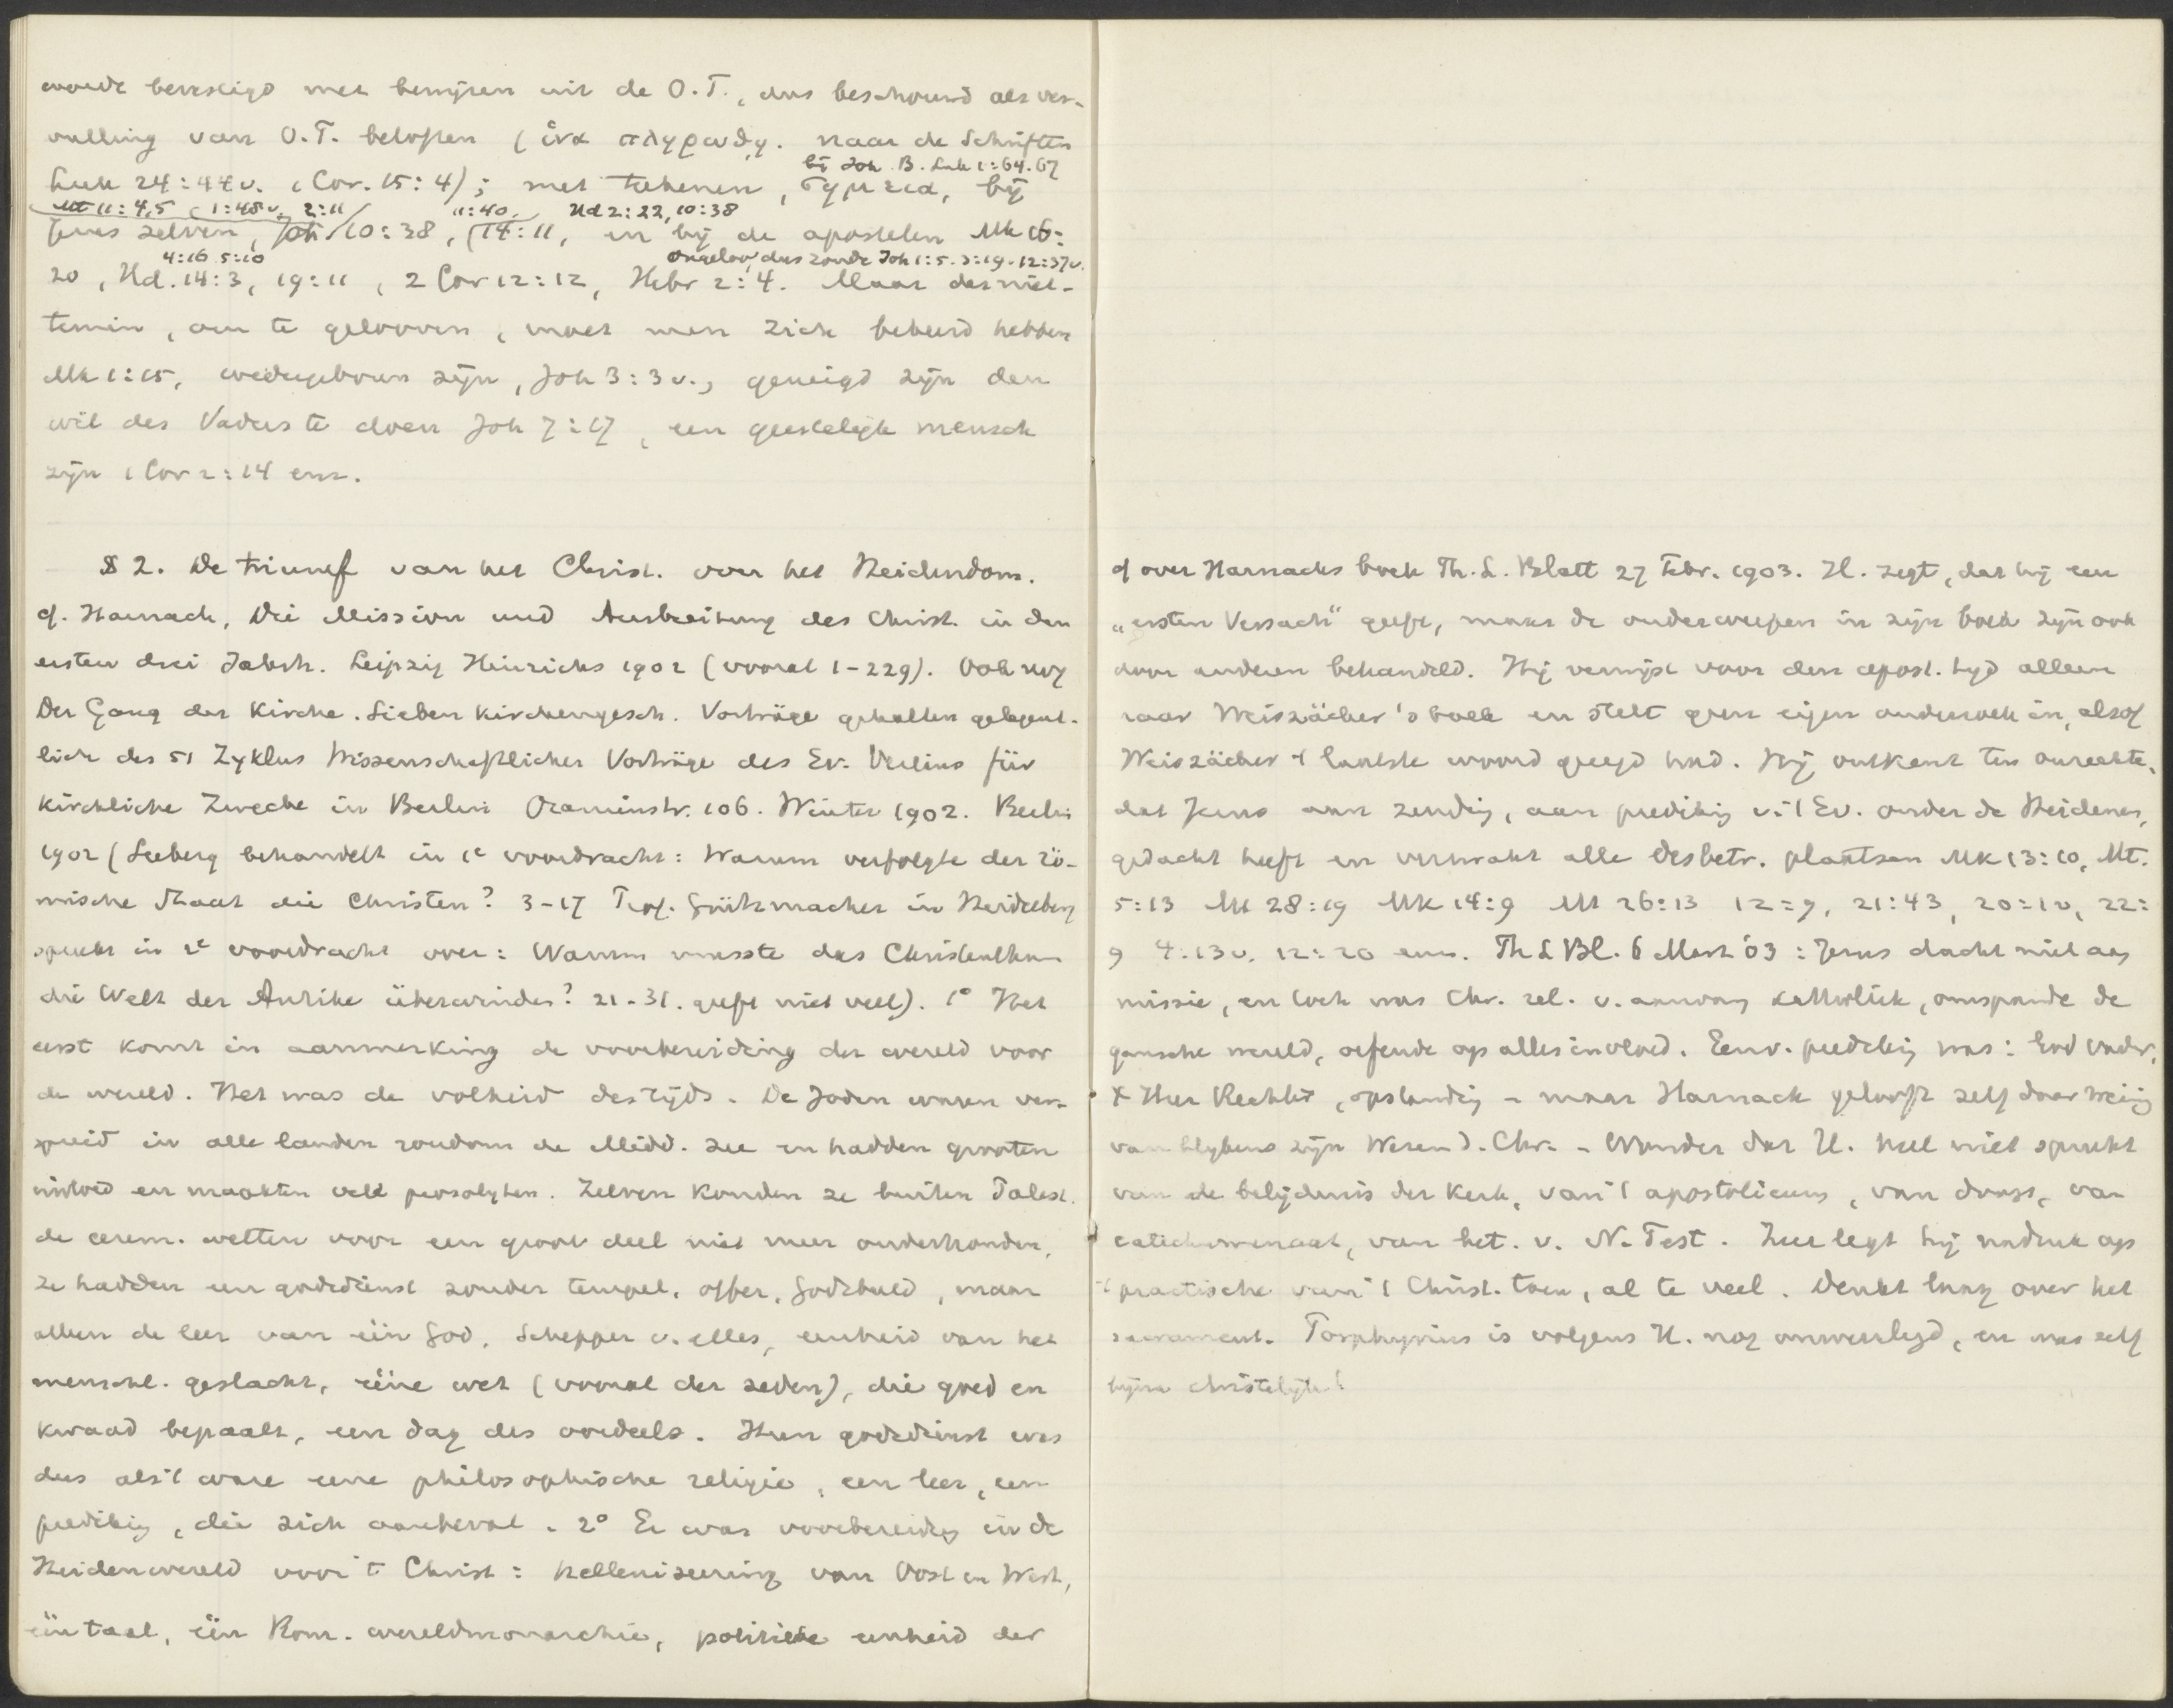 werd bevestigd met bewijzen uit de O.T., dus beschouwd als ver-
vulling van O.T. beloften (ἵνα πληρωθῃ. naar de Schriften
bij Joh. B. Luk 1:64.67
Luk 24:44v. 1 Cor. 15:4); met teekenen, σημεια, bij
Mt 11:4,5 1:48v. 2:11 11:40. Hd 2:22, 10:38
Jezus zelven, Joh 10:38, 14:11, en bij de apostelen Mk 16:
4:16 5:10 Ongeloof dus zonde Joh 1:5. 3:19. 12:37v.
20, Hd. 14:3, 19:11, 2 Cor 12:12, Hebr 2:4. Maar desniet-
temin, om te gelooven, moet men zich bekeerd hebben
Mk 1:15, wedergeboren zijn, Joh 3:3v., geneigd zijn den
wil des Vaders te doen Joh 7:17, een geestelijk mensch
zijn 1 Cor 2:14 enz.
§ 2. De triumf van het Christ. over het Heidendom.
cf. Harnack, Die Mission und Ausbreitung des Christ. in den
ersten drei Jahrh. Leipzig Hinrichs 1902 (vooral 1-229). Ook nog
Der Gang der Kirche. Sieben Kirchengesch. Vorträge gehalten gelegent-
lich des 51 Zyklus Wissenschaftlicher Vorträge des Ev. Vereins für
kirchliche Zwecke in Berlin Oranienstr. 106. Winter 1902. Berlin
1902 (Seeberg behandelt in 1e voordracht: Warum verfolgte der rö-
mische Staat die Christen? 3-17 Prof. Grützmacher in Heidelberg
spreekt in 2e voordracht over: Warum musste das Christenthum
die Welt der Antike überwinden? 21-31. geeft niet veel). 1° Het
eerst komt in aanmerking de voorbereiding der wereld voor
de wereld. Het was de volheid des tijds. De Joden waren ver-
spreid in alle landen rondom de Midd. zee en hadden grooten
invloed en maakten veel proselyten. Zelven konden ze buiten Palest.
de cerem. wetten voor een groot deel niet meer onderhouden,
ze hadden een godsdienst zonder tempel, offer, Godsbeeld, maar
alleen de leer van één God, Schepper v. alles, eenheid van het
menschl. geslacht, ééne wet (vooral der zeden), die goed en
kwaad bepaalt, een dag des oordeels. Hun godsdienst was
dus als 't ware eene philosophische religie, een leer, een
prediking, die zich aanbeval. 2° Er was voorbereiding in de
Heidenwereld voor 't Christ: helleniseering van Oost en West,
één taal, één Rom. wereldmonarchie, politieke eenheid der
cf over Harnacks boek Th. L. Blatt 27 Febr. 1903. H. zegt, dat hij een
„ersten Versuch" geeft, maar de onderwerpen in zijn boek zijn ook
door anderen behandeld. Hij verwijst voor den apost. tijd alleen
naar Weiszäcker's boek en stelt geen eigen onderzoek in, alsof
Weiszäcker 't laatste woord gezegd had. Hij ontkent ten onrechte,
dat Jezus aan zending, aan prediking v. 't Ev. onder de Heidenen,
gedacht heeft en verwerpt alle desbetr. plaatsen Mk 13:10, Mt.
5:13 Mt 28:19 Mk 14:9 Mt 26:13 12=9, 21:43, 20=1v, 22:
9 4:13v. 12:20 enz. Th L Bl. 6 Mart '03: Jezus dacht niet aan
missie, en toch was Chr. rel. v. aanvang katholiek, omspande de
gansche wereld, oefende op alles invloed. Eenv. prediking was: God Vader,
X Heer Rechter, opstanding - maar Harnack gelooft zelf daar weinig
van blijkens zijn Wesen d. Chr. - Wonder dat H. heel niet spreekt
van de belijdenis der kerk, van 't apostolicum, van doop, van
catechumenaat, van het. v. N. Test. Zeer legt hij nadruk op
't practische van 't Christ. toen, al te veel. Denkt laag over het
sacrament. Porphyrius is volgens H. nog onweerlegd, en was zelf
bijna christelijk!